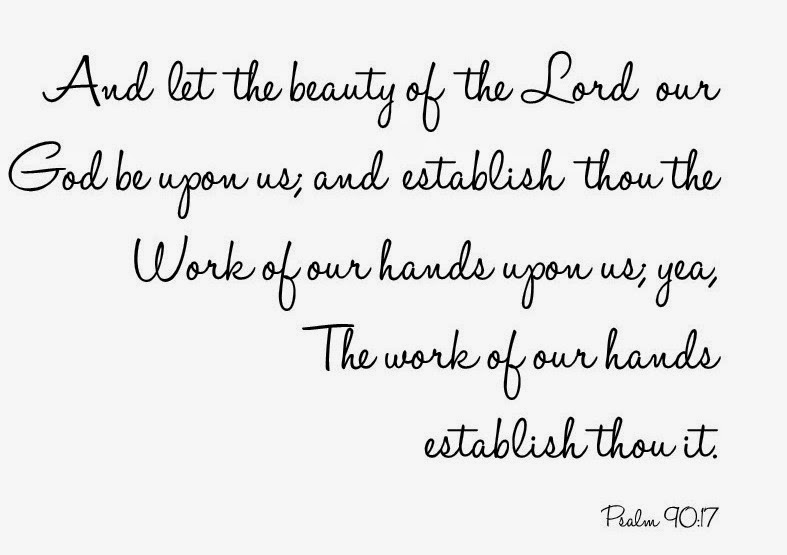 And let the beauty of the Lord our
God be upon us; and establish thou the
Work of our hands upon us; yea,
The work of our hands
establish thou it.
Psalm 90:17